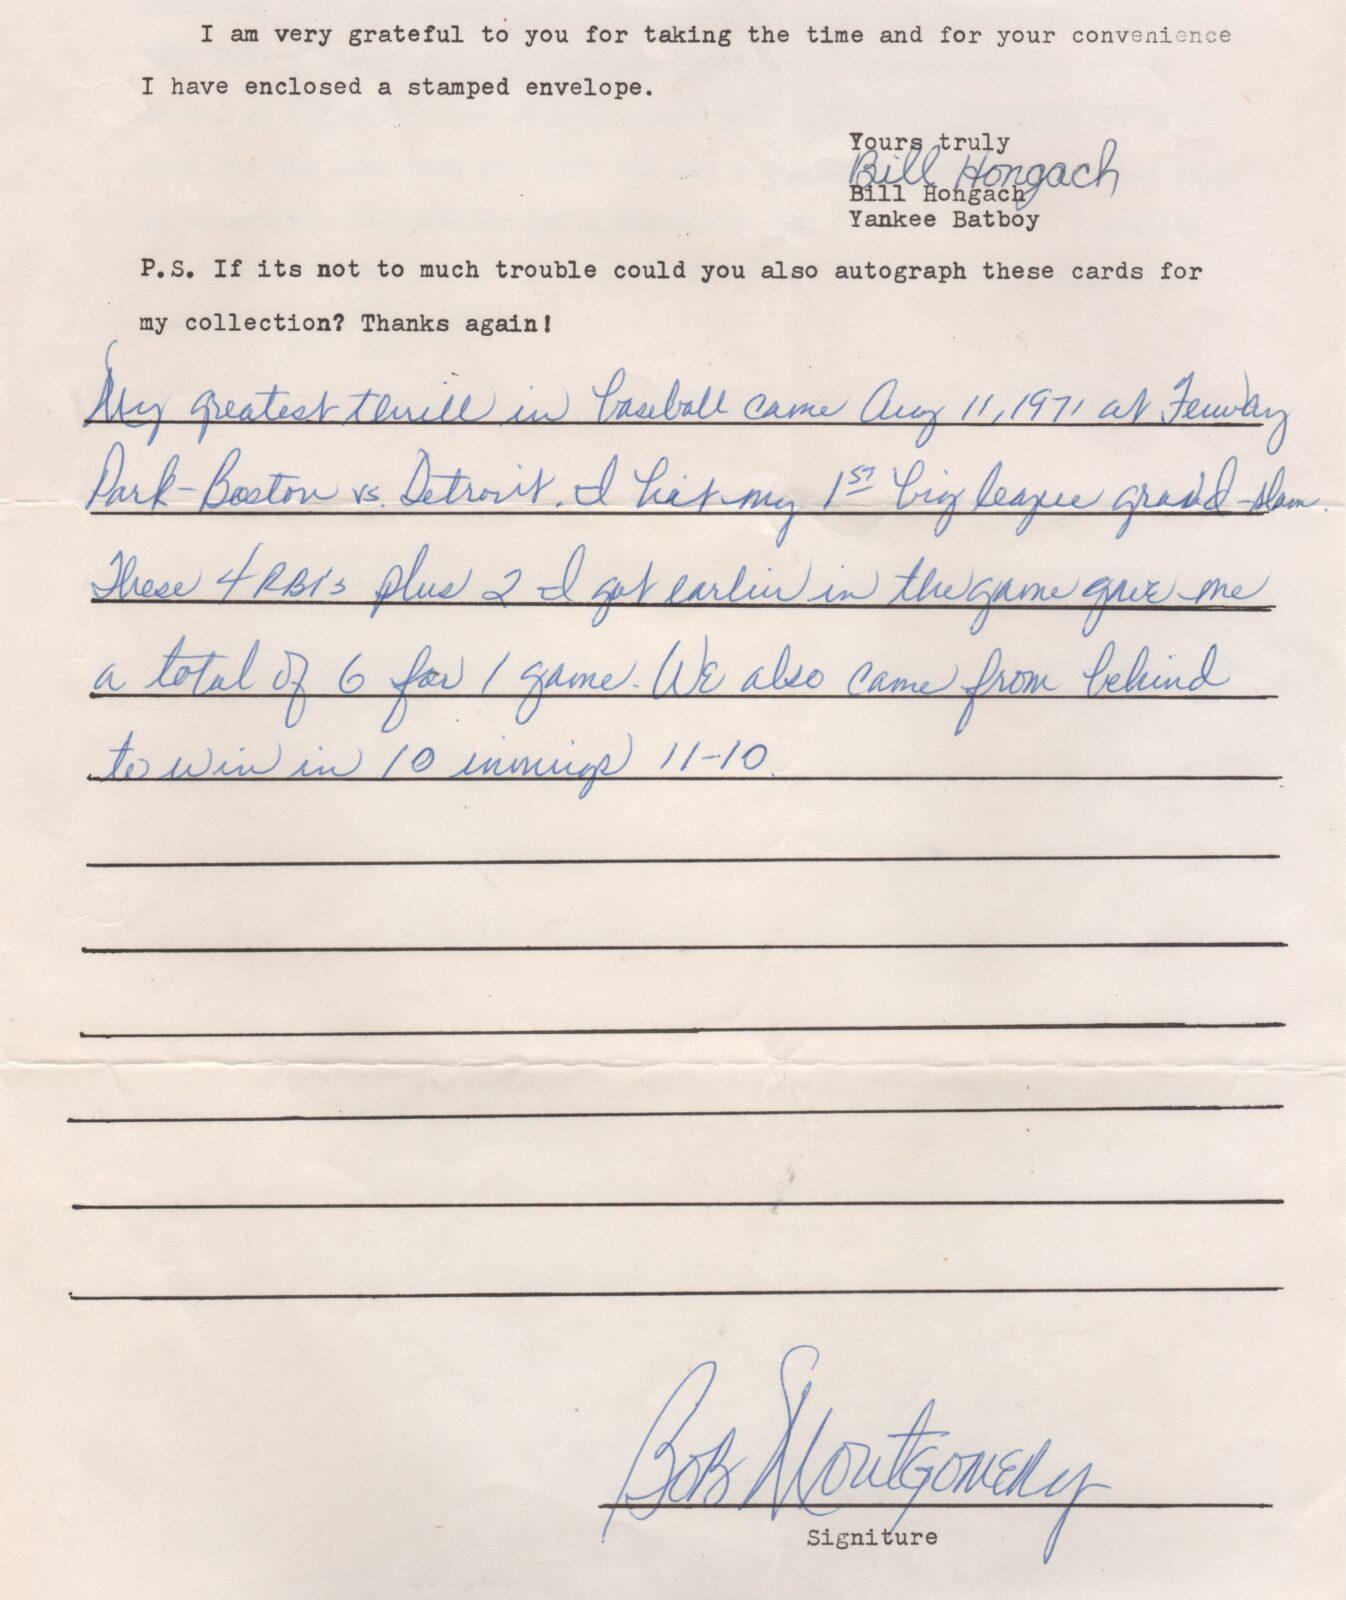 I am very grateful to you for taking the time and for your convenience
I have enclosed a stamped envelope.
Yours truly
Bill Hongach
Bill Hongach
Yankee Batboy
P.S. If its not to much trouble could you also autograph these cards for
my collection? Thanks again!
My greatest thrill in baseball came Aug 11, 1971 at Fenway
Park-Boston vs. Detroit. I hit my 1st big league grand-slam.
These 4 RBI's plus 2 I got earlier in the game gave me
a total of 6 for 1 game. We also came from behind
to win in 10 innings 11-10.
Bob Montgomery
Signiture